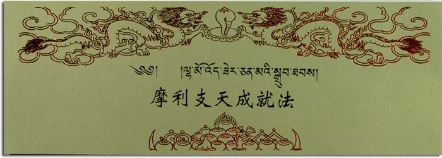 ༄༅། །ལྷ་མོ་འོད་ཟེར་ཅན་མའི་སྒྲུབ་ཐབས།
摩利支天成就法